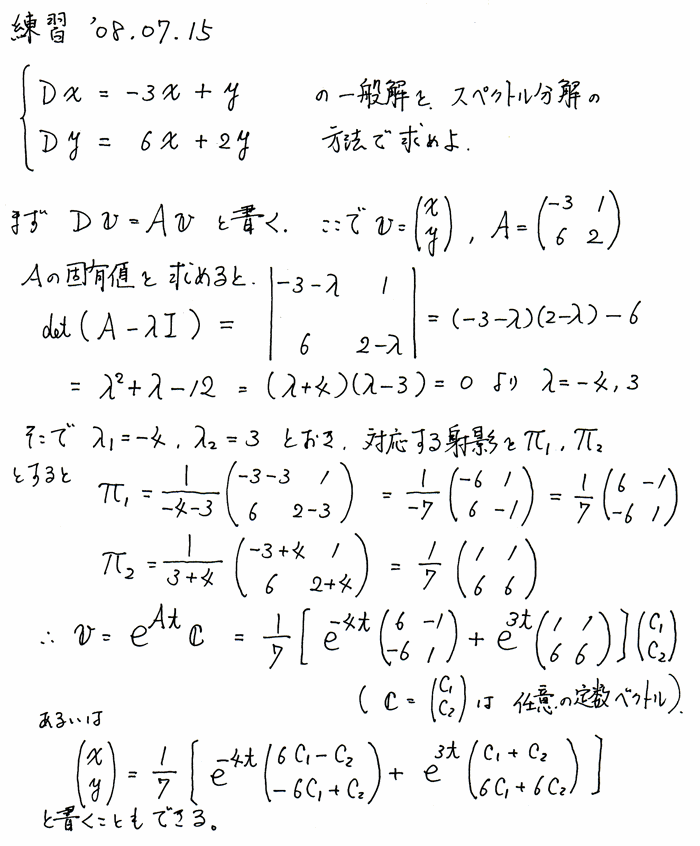 練習 '08.07.15
{ Dx = -3x + y の一般解を、スペクトル分解の
Dy = 6x + 2y 方法で求めよ.
まず Dv = Av と書く. ここで v = (x y), A = (-3 1 6 2)
Aの固有値を求めると.
det(A-λI) = |-3-λ 1 6 2-λ| = (-3-λ)(2-λ) - 6
= λ²+λ-12 = (λ+4)(λ-3) = 0 より λ=-4, 3
そこで λ₁=-4, λ₂=3 とおき, 対応する射影を π₁, π₂
とすると π₁ = 1/(-4-3) (-3-3 1 6 2-3) = 1/-7 (-6 1 6 -1) = 1/7 (6 -1 -6 1)
π₂ = 1/(3+4) (-3+4 1 6 2+4) = 1/7 (1 1 6 6)
∴ v = e^{At} c = 1/7 [ e^{-4t} (6 -1 -6 1) + e^{3t} (1 1 6 6) ] (C₁ C₂)
( c = (C₁ C₂) は 任意の定数ベクトル).
あるいは
(x y) = 1/7 [ e^{-4t} (6C₁-C₂ -6C₁+C₂) + e^{3t} (C₁+C₂ 6C₁+6C₂) ]
と書くこともできる。